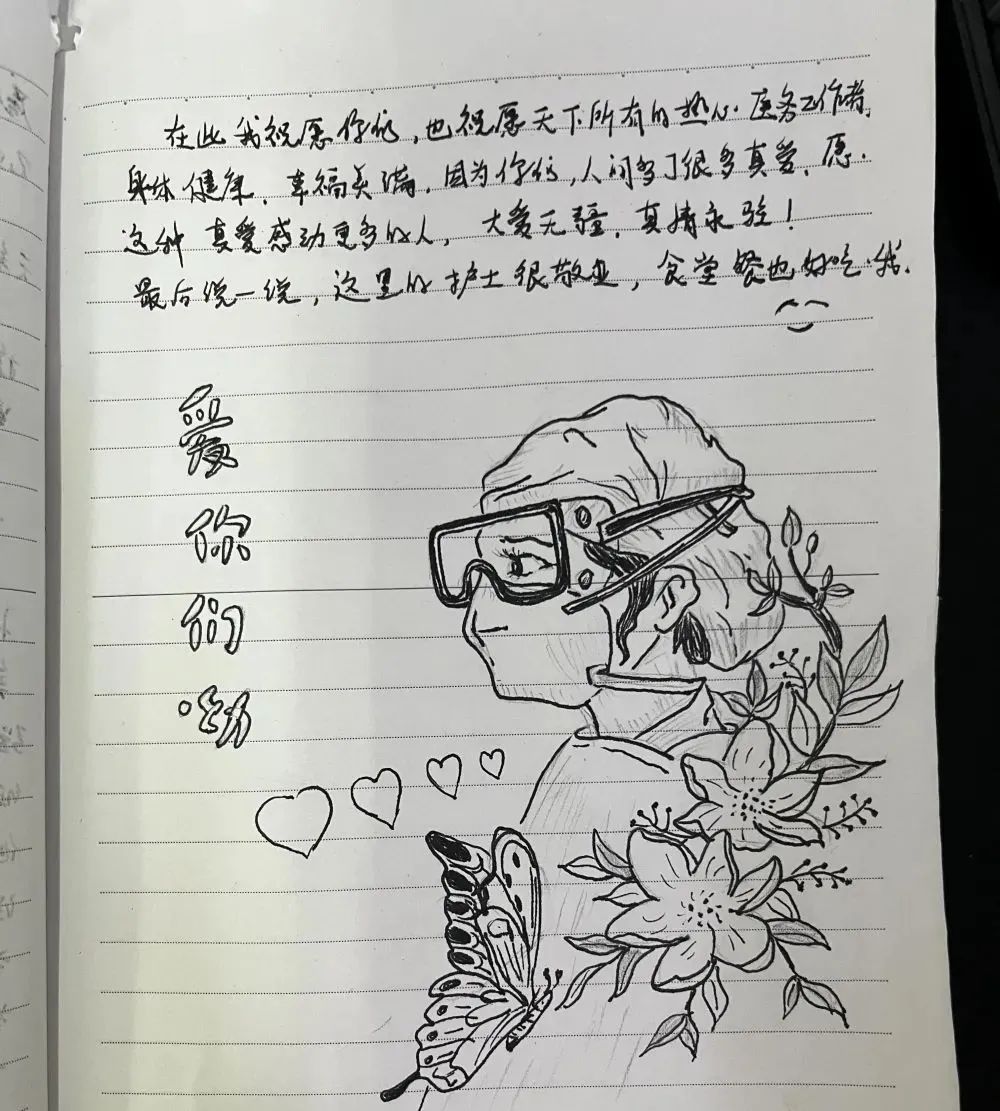 在此我祝愿你们，也祝愿天下所有的热心医务工作者，
身体健康，幸福美满，因为你们，人间多了很多真爱，愿
这种真爱感动更多的人，大爱无疆，真情永驻！
最后说一说，这里的护士很敬业，食堂餐也好吃哦.
爱
你
们
呦